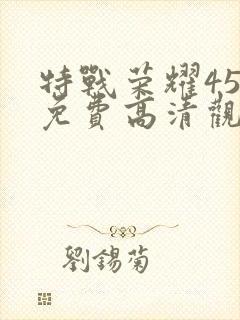 特戰荣耀45
免費高清觀
劉錫菊